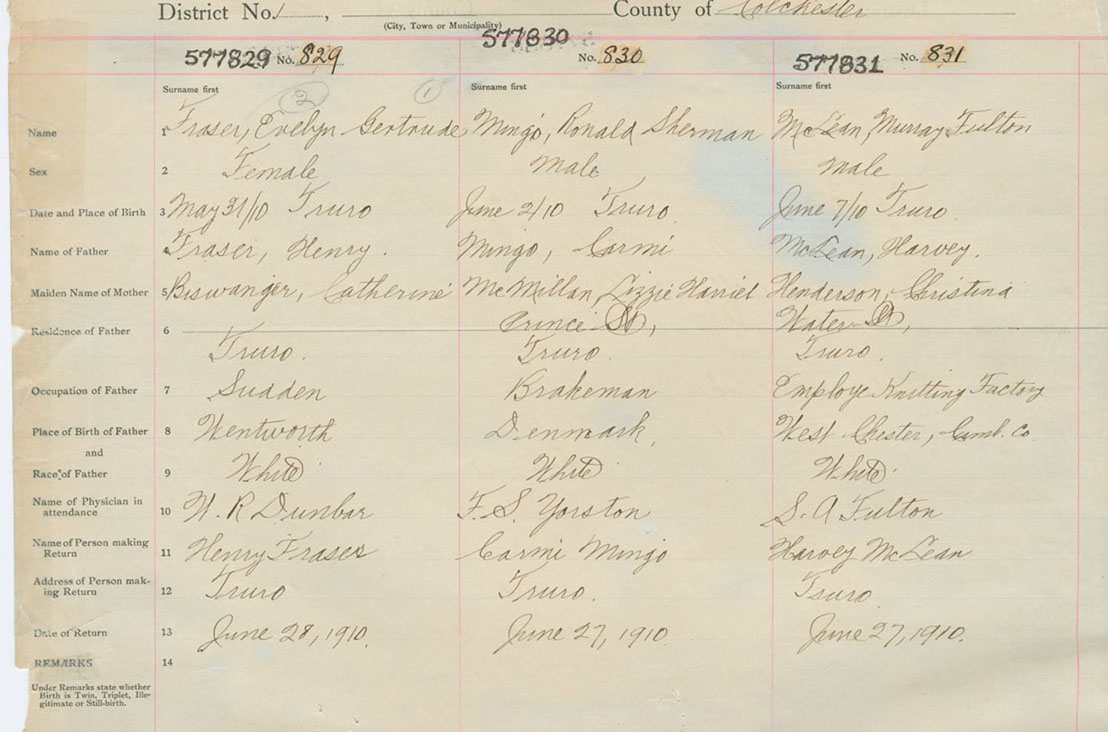 District No. 1, County of Colchester
(City, Town or Municipality)
577829 No. 829 577830 No. 830 577831 No. 831
Surname first Surname first Surname first
2 1
Name 1 Fraser, Evelyn Gertrude Mingo, Ronald Sherman McLean, Murray Fulton
Sex 2 Female Male Male
Date and Place of Birth 3 May 31/10 Truro June 2/10 Truro. June 7/10 Truro.
Name of Father 4 Fraser, Henry. Mingo, Carmi McLean, Harvey.
Maiden Name of Mother 5 Biswanger, Catherine McMillan, Lizzie Harriel Henderson, Christina
Prince St, Water St,
Residence of Father 6 Truro. Truro. Truro.
Occupation of Father 7 Sudden Brakeman Employe Knitting Factory
Place of Birth of Father 8 Wentworth Denmark, West Chester, Cumb. Co.
and
Race of Father 9 White White White
Name of Physician in
attendance 10 W. R Dunbar F. S. Yorston S. A Fulton
Name of Person making
Return 11 Henry Fraser Carmi Mingo Harvey McLean
Address of Person mak-
ing Return 12 Truro Truro. Truro.
Date of Return 13 June 28, 1910. June 27, 1910. June 27, 1910.
REMARKS 14
Under Remarks state whether
Birth is Twin, Triplet, Ille-
gitimate or Still-birth.